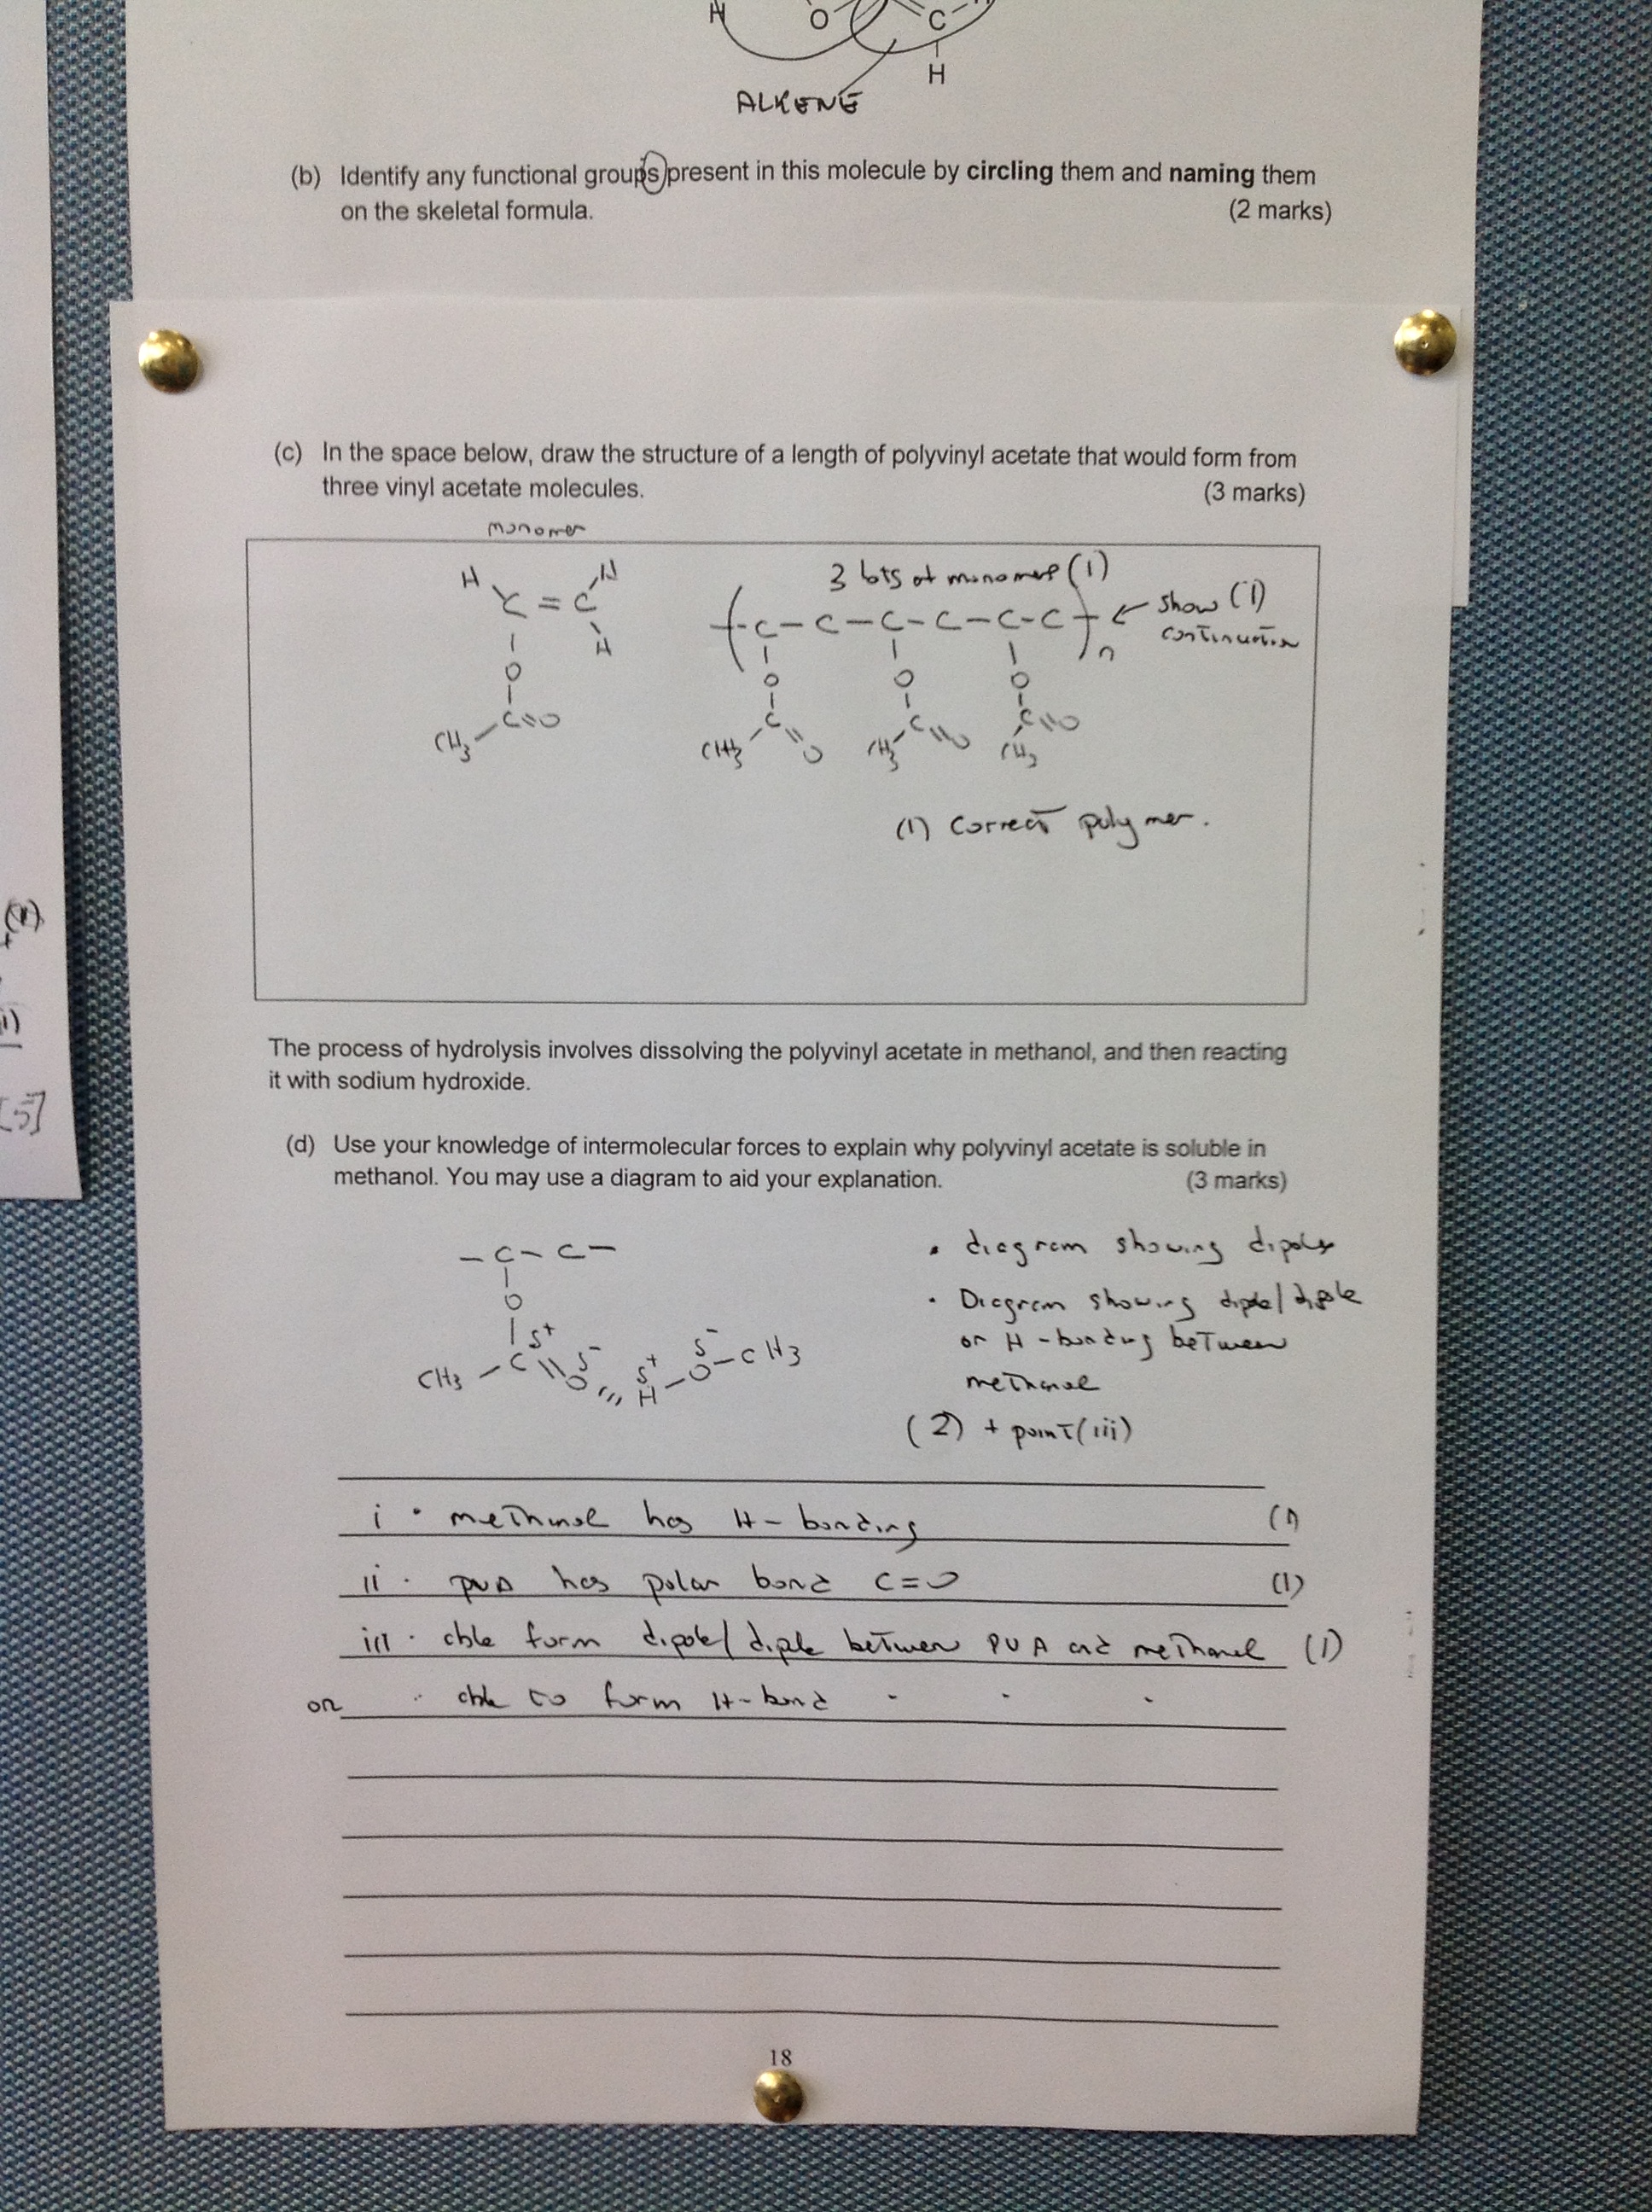 H O C
H
ALKENE
(b) Identify any functional groups present in this molecule by circling them and naming them
on the skeletal formula. (2 marks)
(c) In the space below, draw the structure of a length of polyvinyl acetate that would form from
three vinyl acetate molecules. (3 marks)
monomer
3 lots of monomers (1)
H H
C = C
H
- C - C - C - C - C - C - n
← show (1)
continuation
O O O O
C=O C=O C=O C=O
CH3 CH3 CH3 CH3
(1) correct polymer.
The process of hydrolysis involves dissolving the polyvinyl acetate in methanol, and then reacting
it with sodium hydroxide.
(d) Use your knowledge of intermolecular forces to explain why polyvinyl acetate is soluble in
methanol. You may use a diagram to aid your explanation. (3 marks)
- C - C -
O
CH3 - C δ+ = O δ- ''' H δ+ - O δ- - CH3
• diagram showing dipoles
• Diagram showing dipole/dipole
or H-bonding between
methanol
(2) + point (iii)
i • methanol has H-bonding (1)
ii • PVA has polar bond C=O (1)
iii • able form dipole/diple between PVA and methanol (1)
or • able to form H-bond " " "
18
(1)
[5]